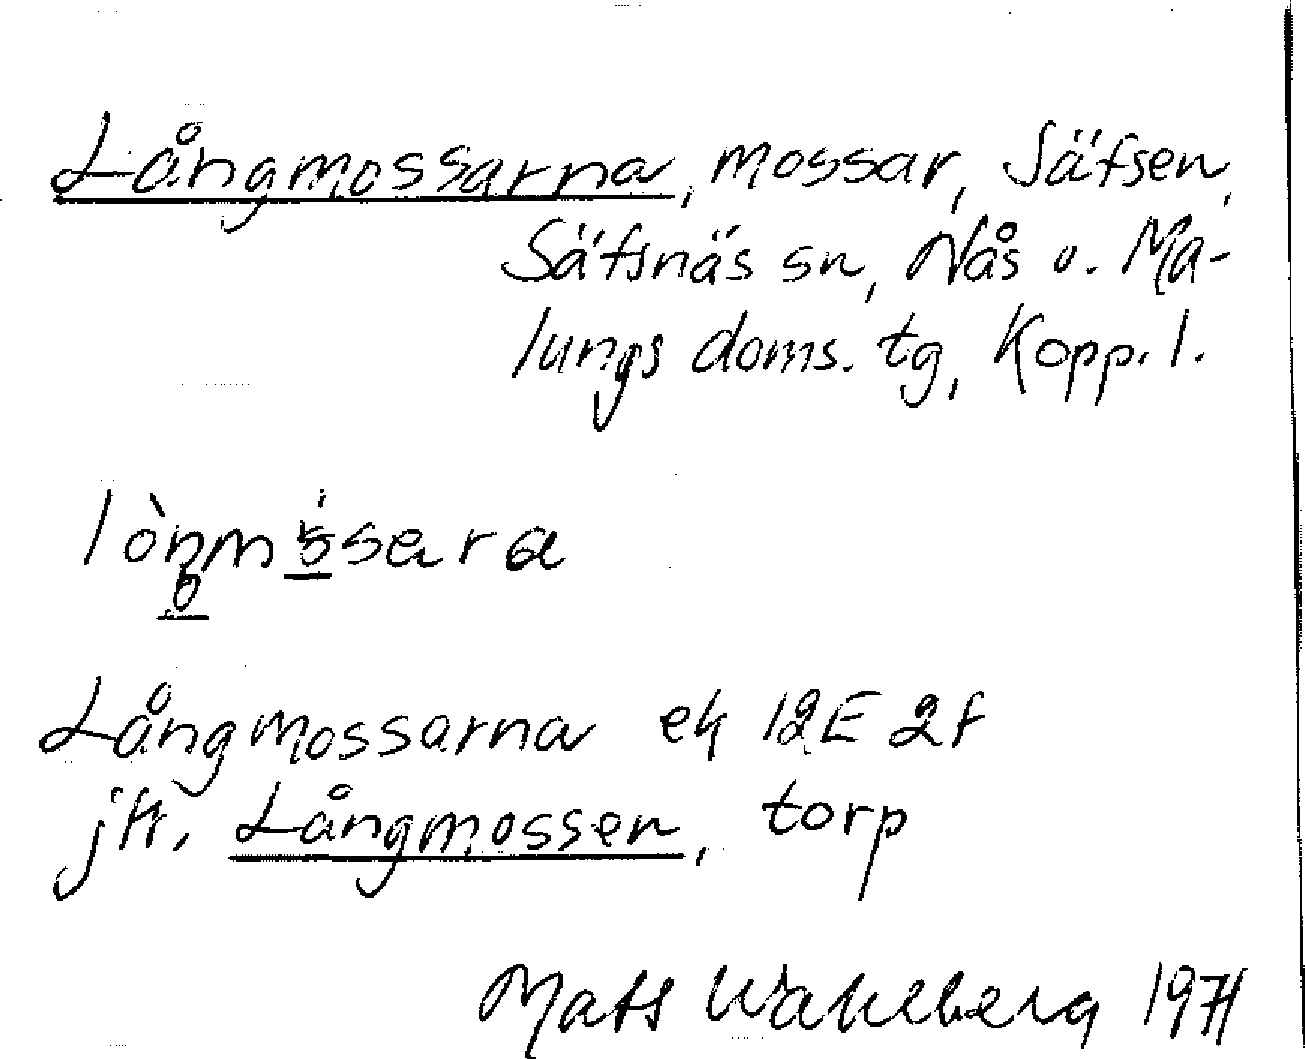 Långmossarna, mossar, Säfsen,
Säfsnäs sn, Nås o. Ma-
lungs doms. tg, Kopp. l.
Långmossarna ek 12E 2f
jfr. Långmossen, torp
Mats Wahlberg 1971